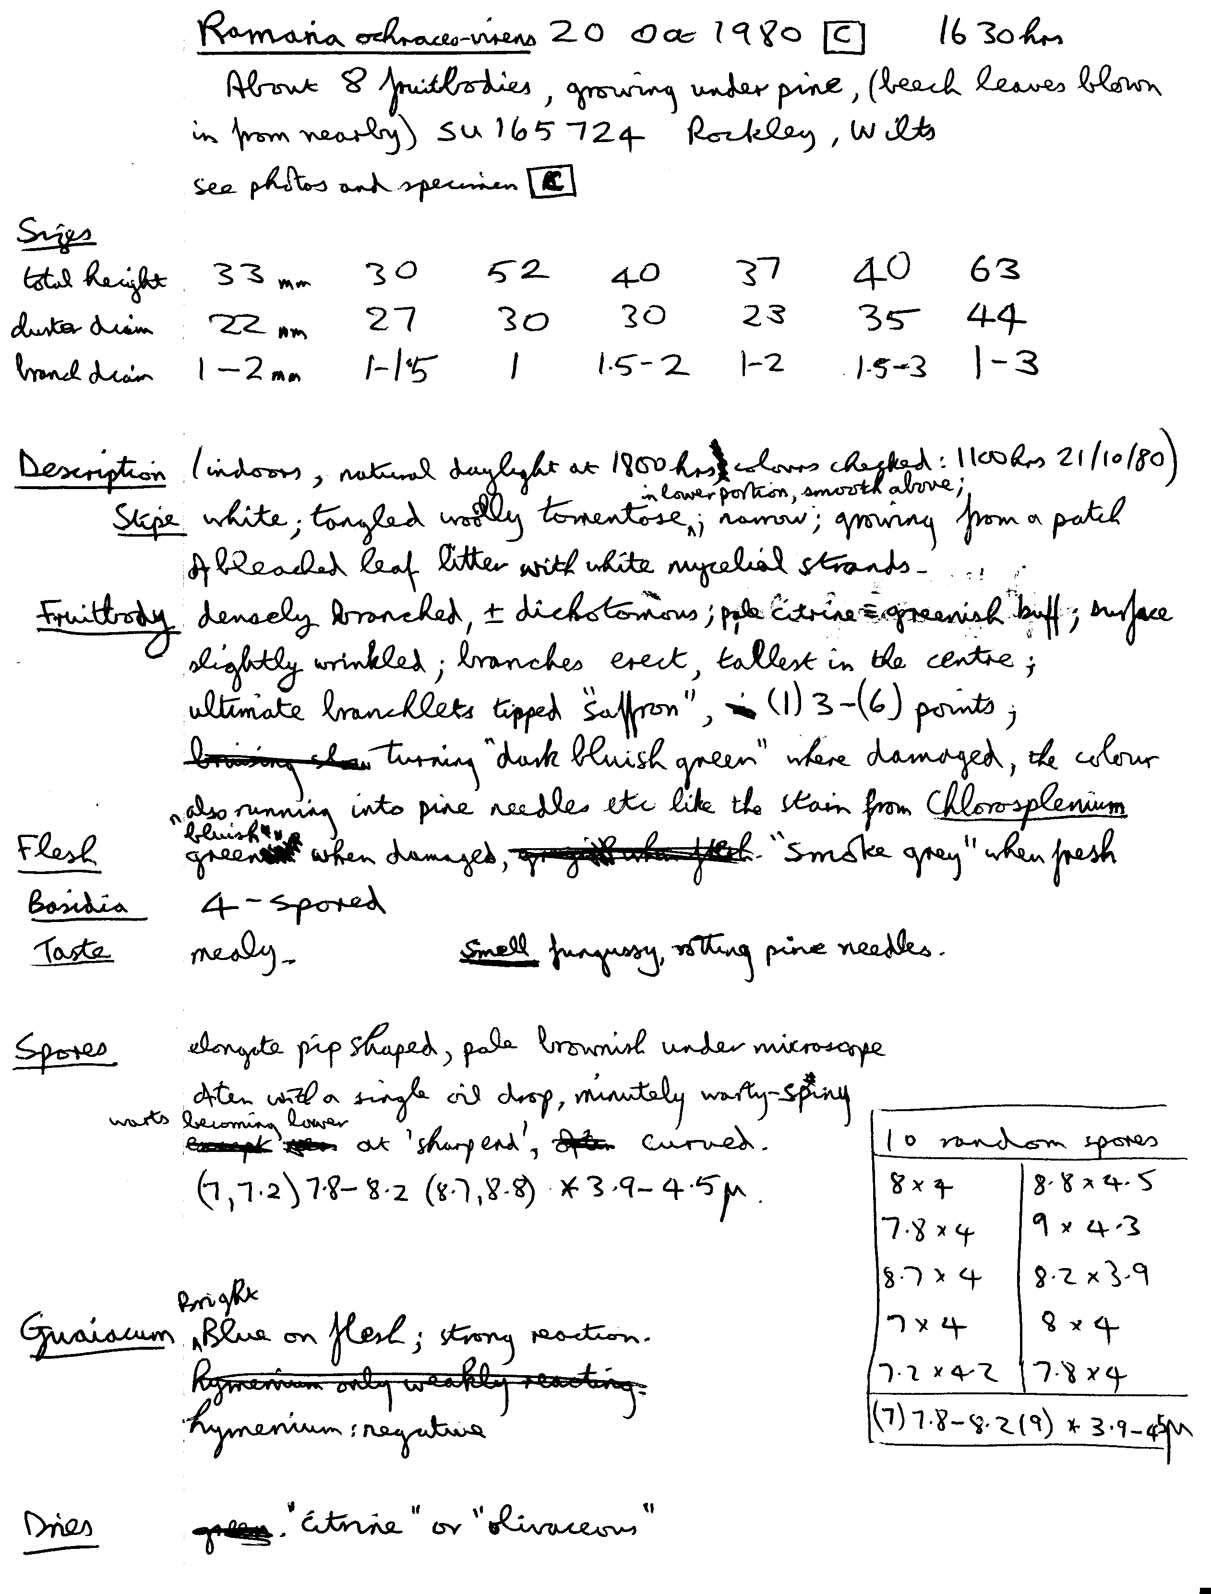 Ramaria ochraceo-virens 20 Oct 1980 [C] 1630hrs
About 8 fruitbodies, growing under pine, (beech leaves blown
in from nearby) SU165724 Rockley, Wilts
see photos and specimen [C]
Sizes
total height 33 mm 30 52 40 37 40 63
cluster diam 22 mm 27 30 30 23 35 44
branch diam 1-2 mm 1-1.5 1 1.5-2 1-2 1.5-3 1-3
Description (indoors, natural daylight at 1800hrs; colours checked: 1100hrs 21/10/80)
in lower portion, smooth above;
Stipe white; tangled woolly tomentose; narrow; growing from a patch
of bleached leaf litter with white mycelial strands.
Fruitbody densely branched, ± dichotomous; pale citrine = greenish buff; surface
slightly wrinkled; branches erect, tallest in the centre;
ultimate branchlets tipped "saffron", (1) 3-(6) points;
bruising show turning "dark bluish green" where damaged, the colour
also running into pine needles etc like the stain from Chlorosplenium
bluish
Flesh green when damaged, "smoke grey" when fresh
Basidia 4-spored
Taste mealy. Smell fungussy, rotting pine needles.
Spores elongate pip shaped, pale brownish under microscope
often with a single oil drop, minutely warty-spiny
warts becoming lower
except at 'sharp end', often curved.
(7, 7.2) 7.8-8.2 (8.7, 8.8) * 3.9-4.5µ.
10 random spores
8 x 4 8.8 x 4.5
7.8 x 4 9 x 4.3
8.7 x 4 8.2 x 3.9
7 x 4 8 x 4
7.2 x 4.2 7.8 x 4
(7) 7.8-8.2 (9) * 3.9-4.5µ
Bright
Guaiacum Blue on flesh; strong reaction.
hymenium only weakly reacting.
hymenium: negative
Dries green. "citrine" or "olivaceous"